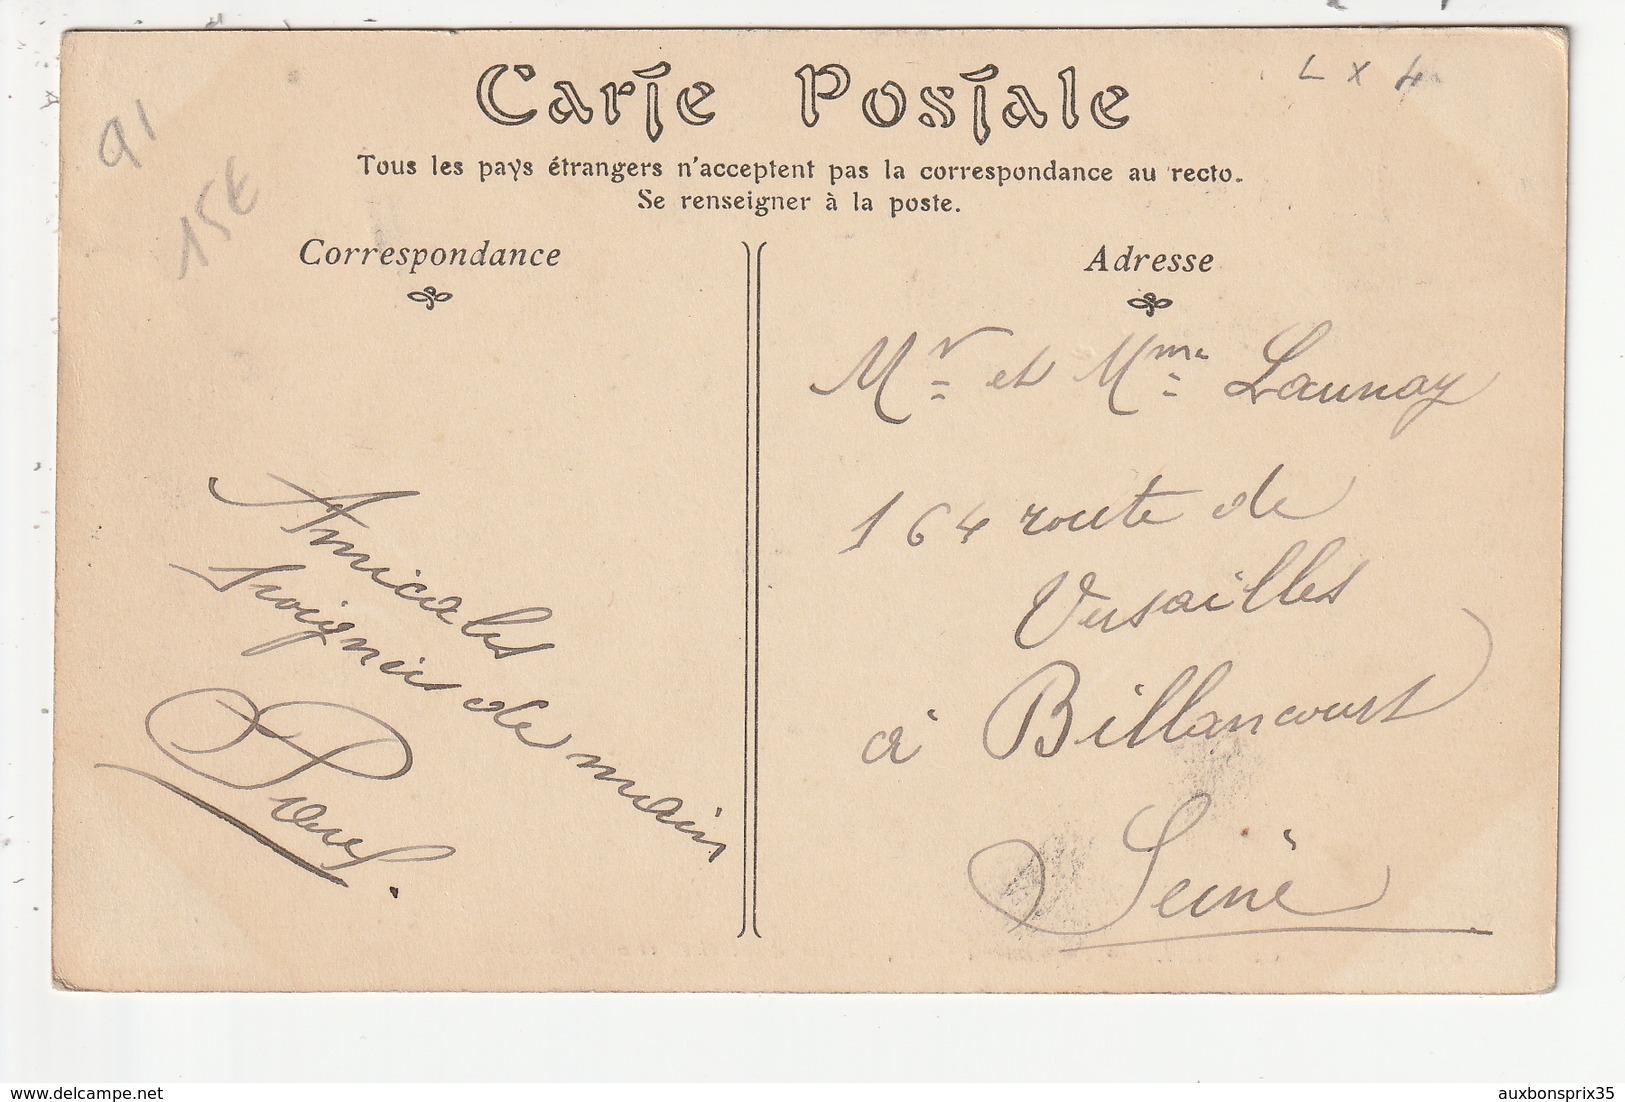 L x 4
91
15€
Carte Postale
Tous les pays étrangers n'acceptent pas la correspondance au recto.
Se renseigner à la poste.
Correspondance
Amicales
poignées de main
Paul.
Adresse
Mr et Mme Launay
164 route de
Versailles
à Billancourt
Seine
delcampe.net
auxbonsprix35